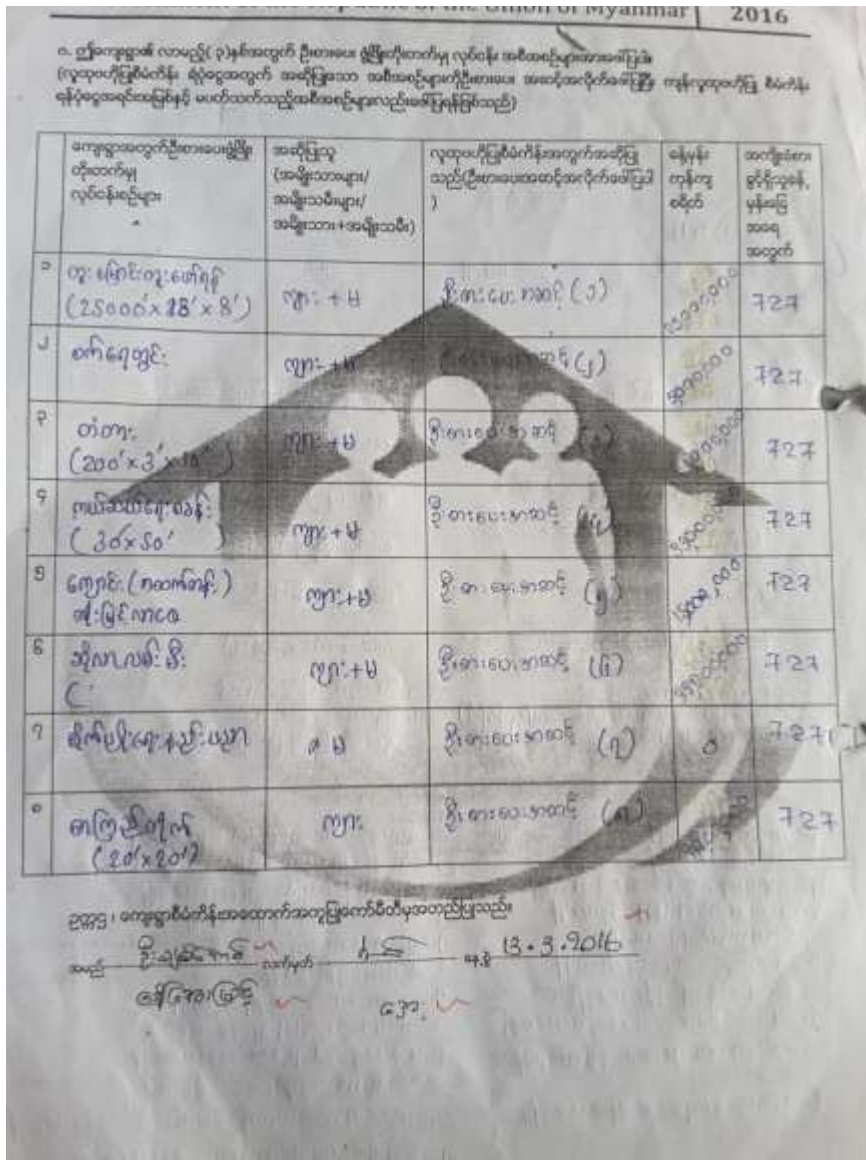 of the Union of Myanmar | 2016
၈. ဤကျေးရွာ၏ လာမည့်(၃)နှစ်အတွက် ဦးစားပေး ဖွံ့ဖြိုးတိုးတက်မှု လုပ်ငန်း အစီအစဉ်များအားဖော်ပြပါ။
(လူထုဗဟိုပြုစီမံကိန်း ရံပုံငွေအတွက် အဆိုပြုသော အစီအစဉ်များကိုဦးစားပေး အဆင့်အလိုက်ဖော်ပြပြီး ကျန်လူထုဗဟိုပြု စီမံကိန်း
ရန်ပုံငွေအရင်းအမြစ်နှင့် မပတ်သက်သည့်အစီအစဉ်များလည်းဖော်ပြရန်ဖြစ်သည်)
ကျေးရွာအတွက်ဦးစားပေးဖွံ့ဖြိုး
တိုးတက်မှု
လုပ်ငန်းစဉ်များ
အဆိုပြုသူ
(အမျိုးသားများ/
အမျိုးသမီးများ/
အမျိုးသား+အမျိုးသမီး)
လူထုဗဟိုပြုစီမံကိန်းအတွက်အဆိုပြု
သည်(ဦးစားပေးအဆင့်အလိုက်ဖော်ပြပါ
)
ခန့်မှန်း
ကုန်ကျ
စရိတ်
အကျိုးခံစား
ခွင့်ရှိသူခန့်
မှန်းခြေ
အရေ
အတွက်
၁ တူးမြောင်းတူးဖော်ရန် ကျား + မ ဦးစားပေးအဆင့် (၁) 727
(25000' x 18' x 8')
၂ စက်ရေတွင်း ကျား + မ ဦးစားပေးအဆင့် (၂) 727
၃ တံတား ကျား + မ ဦးစားပေးအဆင့် (၃) 727
(200' x 3' x 10')
၄ ကယ်ဆယ်ရေးစခန်း ကျား + မ ဦးစားပေးအဆင့် (၄) 727
(30' x 50')
၅ ကျောင်း (အထက်တန်း) ကျား + မ ဦးစားပေးအဆင့် (၅) 15000,000 727
တိုးမြှင့်လာစေ
၆ ဆိုလာလမ်းမီး ကျား + မ ဦးစားပေးအဆင့် (၆) 727
(
၇ စိုက်ပျိုးရေးနည်းပညာ မ ဦးစားပေးအဆင့် (၇) 0 727
၈ စာကြည့်တိုက် ကျား ဦးစားပေးအဆင့် (၈) 727
(20' x 20')
ဥက္ကဌ ၊ ကျေးရွာစီမံကိန်းအထောက်အကူပြုကော်မီတီမှအတည်ပြုသည်။
အမည် လက်မှတ် နေ့စွဲ 13.3.2016
ဒေါ်အေးမြင့် အေး